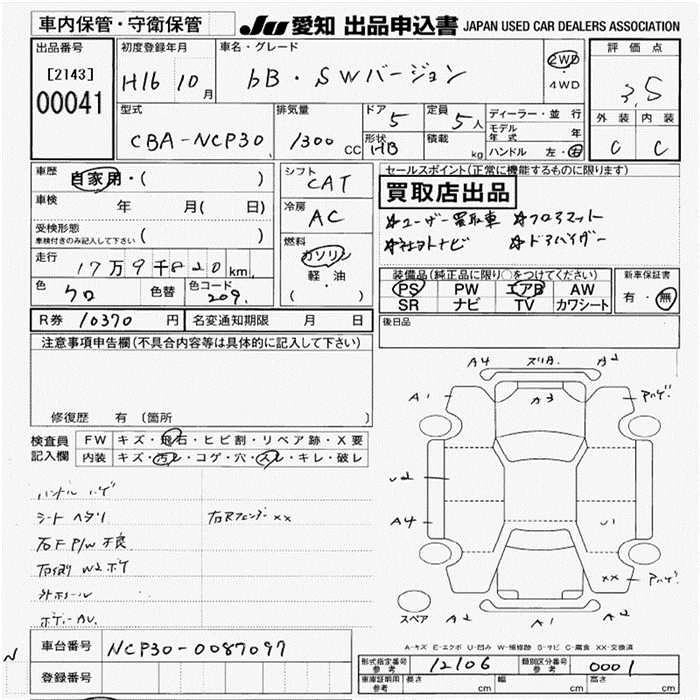 車内保管・守衛保管 JU 愛知 出品申込書 JAPAN USED CAR DEALERS ASSOCIATION
出品番号 初度登録年月 車名・グレード 評価点
[2143] H16 10月 bB・SWバージョン 2WD 3.5
00041 4WD
型式 排気量 ドア 5 定員 5人 ディーラー・並行 外装 内装
モデル年式 年
CBA-NCP30 1300cc 形状 HB 積載 kg ハンドル 左・右 C C
車歴 自家用・( ) シフト CAT セールスポイント(正常に機能するものに限ります)
買取店出品
車検 年 月( 日) 冷房 AC ☆ユーザー買取車 ☆フロアマット
受検形態 ( ) ☆社外ナビ ☆ドアバイザー
車検付きのみ記入して下さい
走行 17万9千820km 燃料 ガソリン 装備品(純正品に限り○をつけてください) 新車保証書
軽・油 PS PW エアB AW 有・無
色 クロ 色替 色コード 209 ( ) SR ナビ TV カワシート
R券 10370円 名変通知期限 月 日 後日品
注意事項申告欄(不具合内容等は具体的に記入して下さい)
修復歴 有 (箇所
検査員 FW キズ・飛石・ヒビ割・リペア跡・X要
記入欄 内装 キズ・汚レ・コゲ・穴・スレ・キレ・破レ
ハンドル ハゲ
シート ヘタリ 右Rフェンダー xx
右F P/W 不良
A4 スリキ A2
A1 A3 ハゲ
U2
A4 U1
xx ハゲ
スペア A2 A1 A2
A-キズ E-エクボ U-凹み W-補修跡 S-サビ C-腐食 XX-交換済
車台番号 NCP30-0087097
N
登録番号
形式指定番号 参考 12106 類別区分番号 参考 0001
車庫証明用 参考 長さ cm 幅 cm 高さ cm